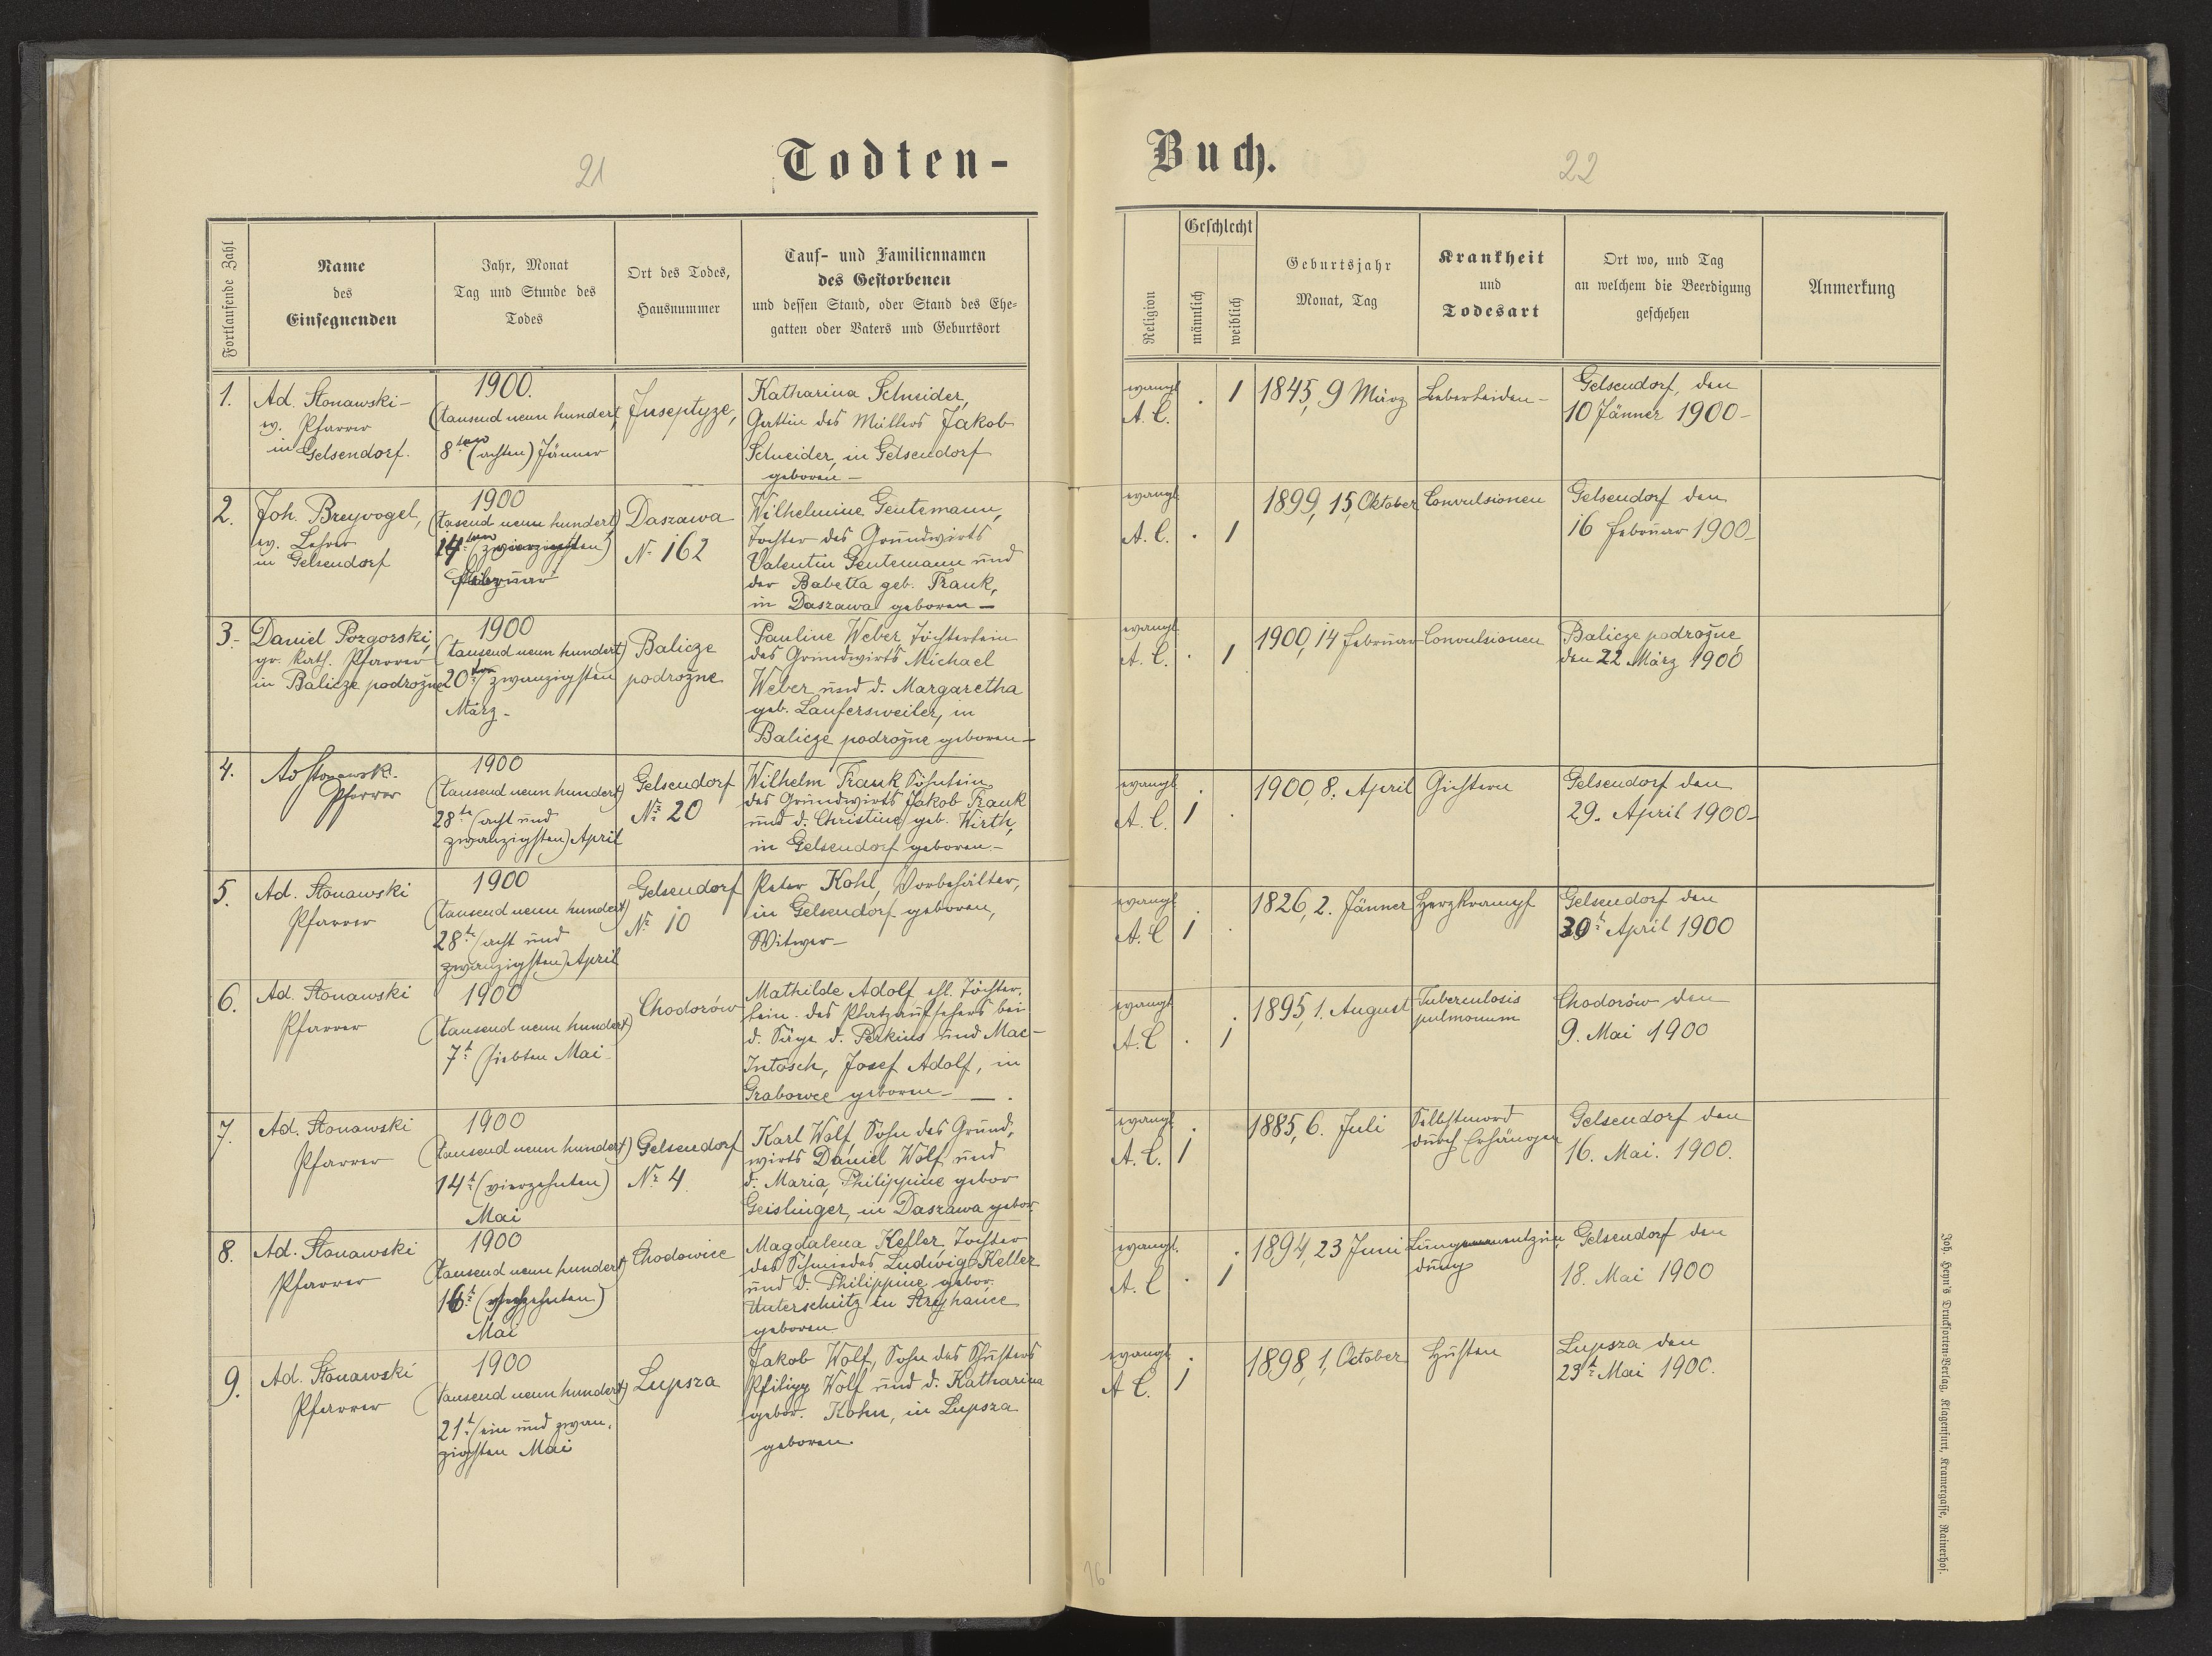 21
Todten-
Buch.
22
Fortlaufende Zahl
Name
des
Einsegnenden
Jahr, Monat
Tag und Stunde des
Todes
Ort des Todes,
Hausnummer
Tauf- und Familiennamen
des Gestorbenen
und dessen Stand, oder Stand des Ehe-
gatten oder Vaters und Geburtsort
Religion
Geschlecht
männlich
weiblich
Geburtsjahr
Monat, Tag
Krankheit
und
Todesart
Ort wo, und Tag
an welchem die Beerdigung
geschehen
Anmerkung
1.
Ad. Stonawski-
ev. Pfarrer
in Gelsendorf.
1900.
(tausend neun hundert,
8ten (achten) Jänner
Juseptyze,
Katharina Schneider,
Gattin des Müllers Jakob
Schneider, in Gelsendorf
geboren-
evangl
A. C.
. 1
1845, 9 März
Leberleiden-
Gelsendorf, den
10 Jänner 1900-
2.
Joh. Breyvogel,
ev. Lehrer
in Gelsendorf
1900
(tasend neun hundert)
14ten
Februar
Daszawa
N. 162
Wilhelmine Gentemann,
Tochter des Grundwirts
Valentin Gentemann und
der Babetta geb. Frank,
in Daszawa geboren-
evangl.
A. C.
. 1
1899, 15, Oktober
Convulsionen
Gelsendorf den
16 Februar 1900-
3.-
Daniel Pozgorski,
gr. kath. Pfarrer
in Balicze podrożne
1900
(tausend neun hundert)
20ten/zwanzigsten
März-
Balicze
podrożne
Pauline Weber, Töchterlein
des Grundwirts Michael
Weber und d. Margaretha
geb. Laufersweiler, in
Balicze podrożne geboren-
evangl.
A. C.
. 1
1900, 14 Februar
Convulsionen
Balicze podrożne
den 22 März 1900
4.
Ad Stonawski.
Pfarrer
1900
(tausend neun hundert)
28te (acht und
zwanzigsten) April
Gelsendorf
Nr. 20
Wilhelm Frank, Söhnlein
des Grundwirts Jakob Frank
und d. Christine, geb. Wirth,
in Gelsendorf geboren.-
evangl
A. C.
1 .
1900, 8. April
Gichtern
Gelsendorf den
29. April 1900-
5.
Ad. Stonawski
Pfarrer
1900
(tausend neun hundert)
28te (acht und
zwanzigsten) April
Gelsendorf
Nr 10
Peter Kohl, Vorbehälter,
in Gelsendorf geboren,
Witwer-
evangl
A. C
1 .
1826, 2. Jänner
Herzkrampf
Gelsendorf den
30t April 1900
6.
Ad. Stonawski
Pfarrer
1900
(tausend neun hundert)
7t (siebten Mai-
Chodorów
Mathilde Adolf ehl. Töchter-
lein. des Platzaufsehers bei
d. Säge d. Perkins und Mac-
Intosch, Josef Adolf, in
Grabowce geboren-
evangl
A. C
. 1
1895, 1. August
Tuberculosis
pulmonum
Chodorów den
9. Mai 1900
7.
Ad. Stonawski
Pfarrer
1900
(tausend neun hundert)
14t (vierzehnten)
Mai
Gelsendorf
Nr 4.
Karl Wolf, Sohn des Grund-
wirts Daniel Wolf und
d. Maria, Philippine gebor
Geislinger, in Daszawa gebor.
evangl
A. C.
1 .
1885, 6. Juli
Selbstmord
durch Erhängen
Gelsendorf den
16. Mai. 1900.
8.
Ad. Stonawski
Pfarrer
1900
(tausend neun hundert)
16t (sechzehnten)
Mai
Chodowice
Magdalena Keller, Tochter
des Schmiedes Ludwig Keller
und d. Philippine gebor.
Unterschütz in Stryhance
geboren
evangl.
A. C
. 1
1894, 23 Juni
Lungenentzün
dung
Gelsendorf den
18. Mai 1900
9.
Ad. Stonawski
Pfarrer
1900
(tausend neun hundert)
21t (ein und zwan-
zigsten Mai
Lupsza
Jakob Wolf, Sohn des Schusters
Philipp Wolf und d. Katharina
gebor. Kohn, in Lupsza
geboren.
evangl
A C.
1 .
1898, 1, October
Husten
Lupsza den
23t Mai 1900.
16
Joh. Heyn's Drucksorten-Verlag, Klagenfurt, Kramergasse, Rainerhof.